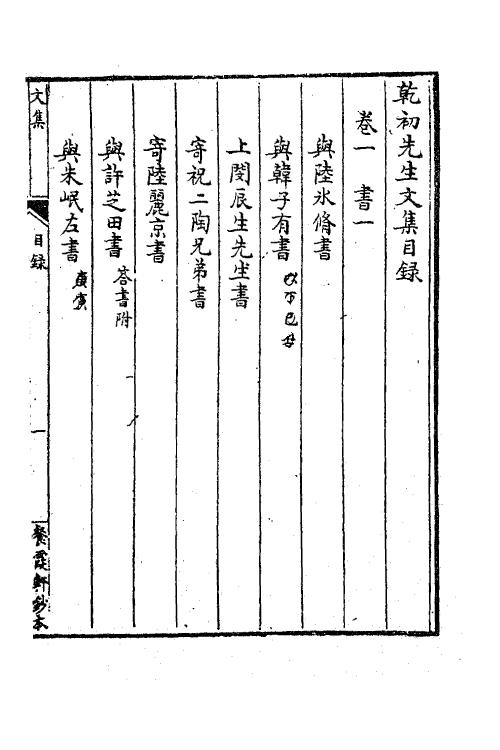 乾初先生文集目録
卷一　書一
與陸氷脩書
與韓子有書 以下己丑
上閔辰生先生書
寄祝二陶兄弟書
寄陸麗京書
與許芝田書 答書附
與朱岷左書 庚寅
文集
目録
一
餐霞軒鈔本